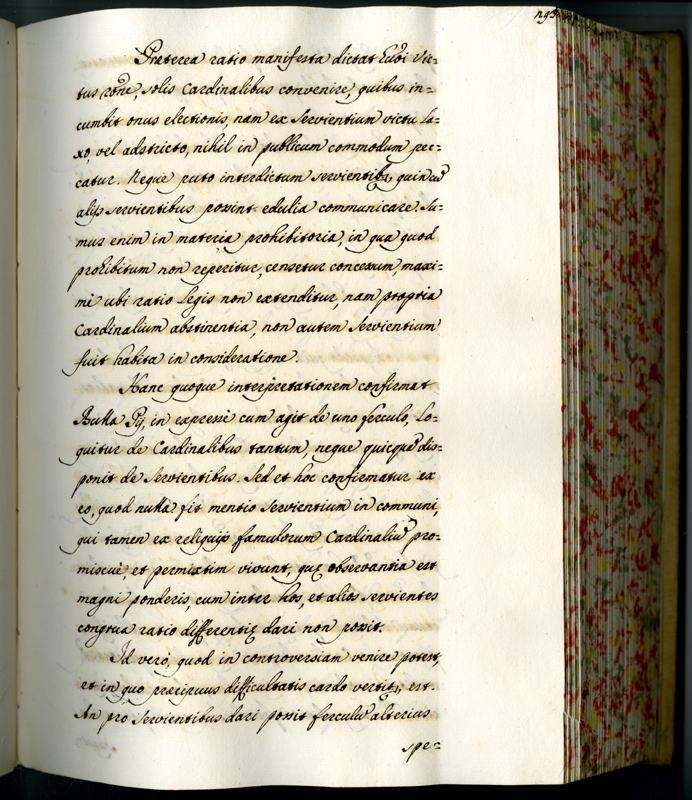 Præterea ratio manifesta dictat hu͠oi vic-
tus ro͠ne, solis Cardinalibus convenire, quibus in=
cumbit onus electionis, nam ex Servientium victu la=
xo, vel adstricto, nihil in publicum commodum pec=
catur. Neque puto interdictum servientib9, quin cu͂
alijs servientibus possint edulia communicare. Su=
mus enim in materia prohibitoria, in qua quod
prohibitum non reperitur, censetur concessum, maxi=
mè ubi ratio Legis non extenditur, nam propria
Cardinalium abstinentia, non autem Servientium
fuit habita in consideratione.
Hanc quoque interpretationem confirmat
Bulla Pij, in expressè cum agit de uno ferculo, lo=
quitur de Cardinalibus tantum, neque quicqua͂ dis=
ponit de Servientibus. Sed et hoc confirmatur ex
eo, quod nulla fit mentio Servientium in communi,
qui tamen ex reliquijs famulorum Cardinaliu͂ pro=
miscuè, et permixtim vivunt, quę observantia est
magni ponderis, cum inter hos, et alios servientes
congrua ratio differentię dari non possit.
Id verò, quod in controversiam venire potest,
et in quo præcipuus difficultatis cardo vertit9, est.
An pro Servientibus dari possit ferculu͂ alterius
spe=